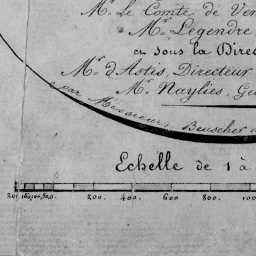 Mr. Le Comte de Ver
Mr. Légendre
en sous la Direc
Mr. d'Astis, Directeur
Mr. Naylies, Gé
par Messieurs Beuscher
Echelle de 1 à
200. 400. 600 800. 100